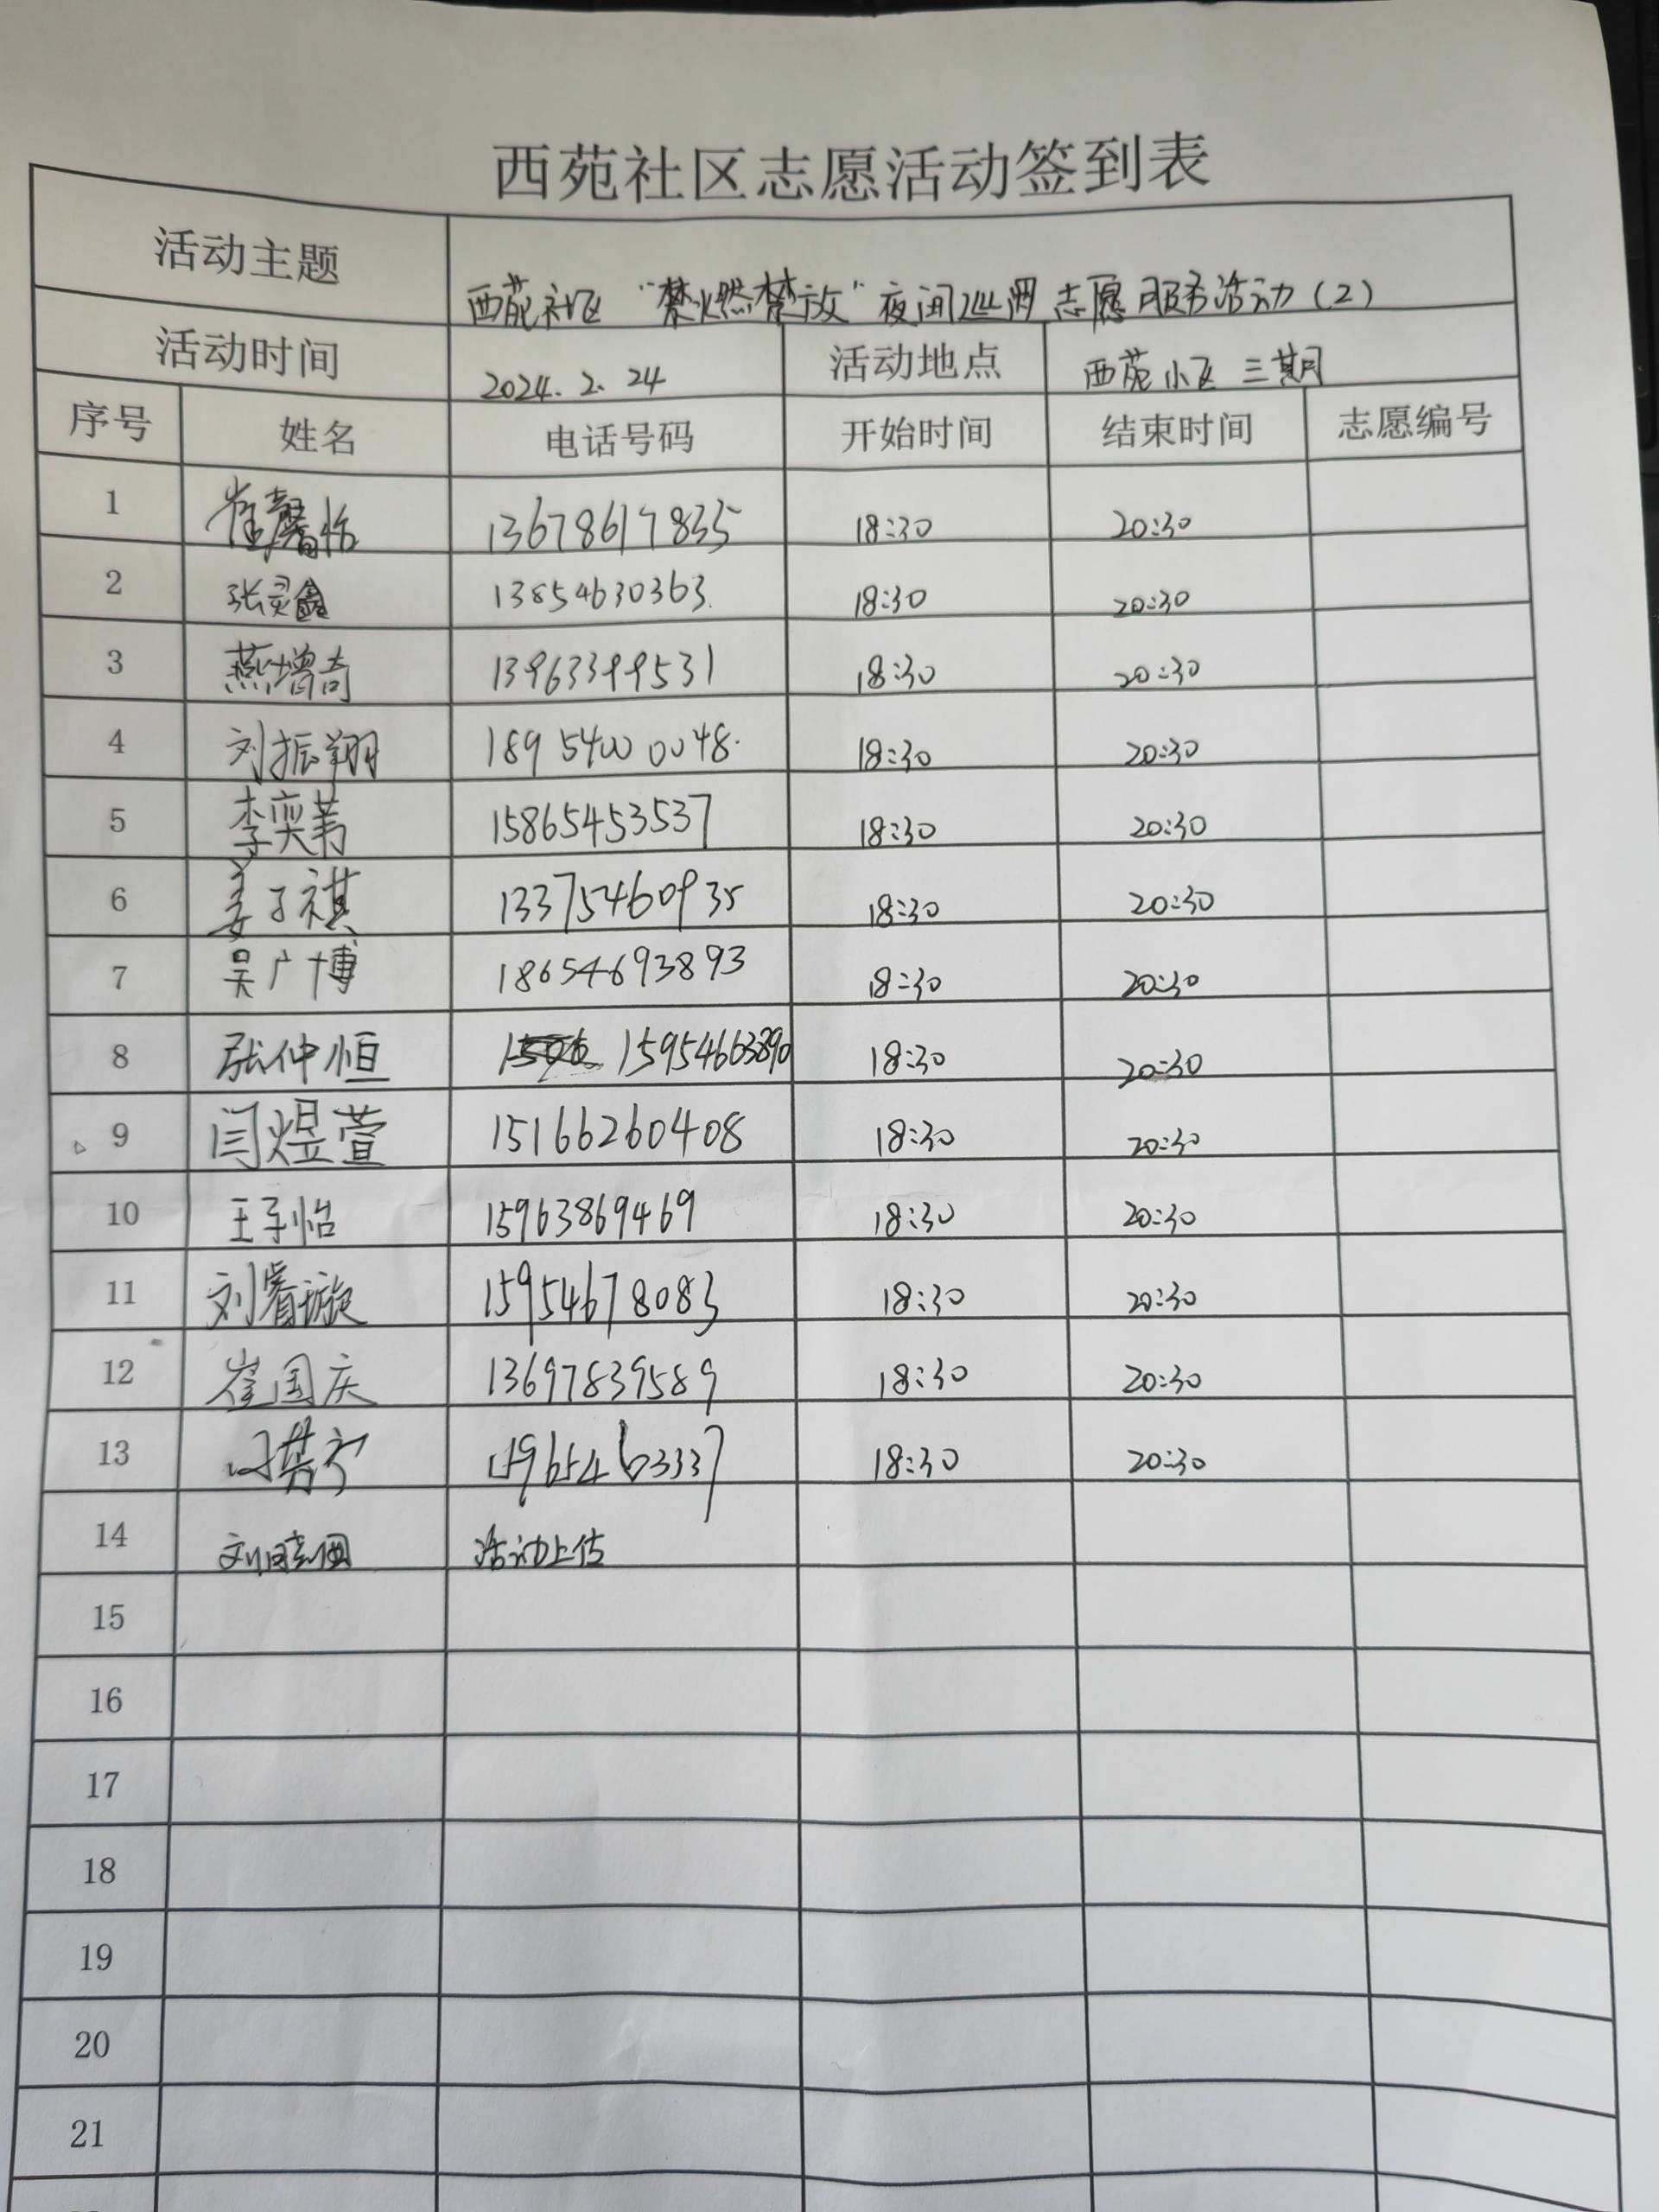 西苑社区志愿活动签到表
活动主题 西苑社区“禁燃禁放”夜间巡逻志愿服务活动(2)
活动时间 2024.2.24 活动地点 西苑小区三期
序号 姓名 电话号码 开始时间 结束时间 志愿编号
1 崔馨怡 13678617835 18:30 20:30
2 张灵鑫 13854630363 18:30 20:30
3 燕增奇 13963399531 18:30 20:30
4 刘振翔 18954000048 18:30 20:30
5 李奕苇 15865453537 18:30 20:30
6 姜子祺 13375460935 18:30 20:30
7 吴广博 18654693893 18:30 20:30
8 张仲恒 15954663890 18:30 20:30
9 闫煜萱 15166260408 18:30 20:30
10 王子怡 15963869469 18:30 20:30
11 刘睿璇 15954678083 18:30 20:30
12 崔国庆 13697839589 18:30 20:30
13 18:30 20:30
14 活动上传
15
16
17
18
19
20
21